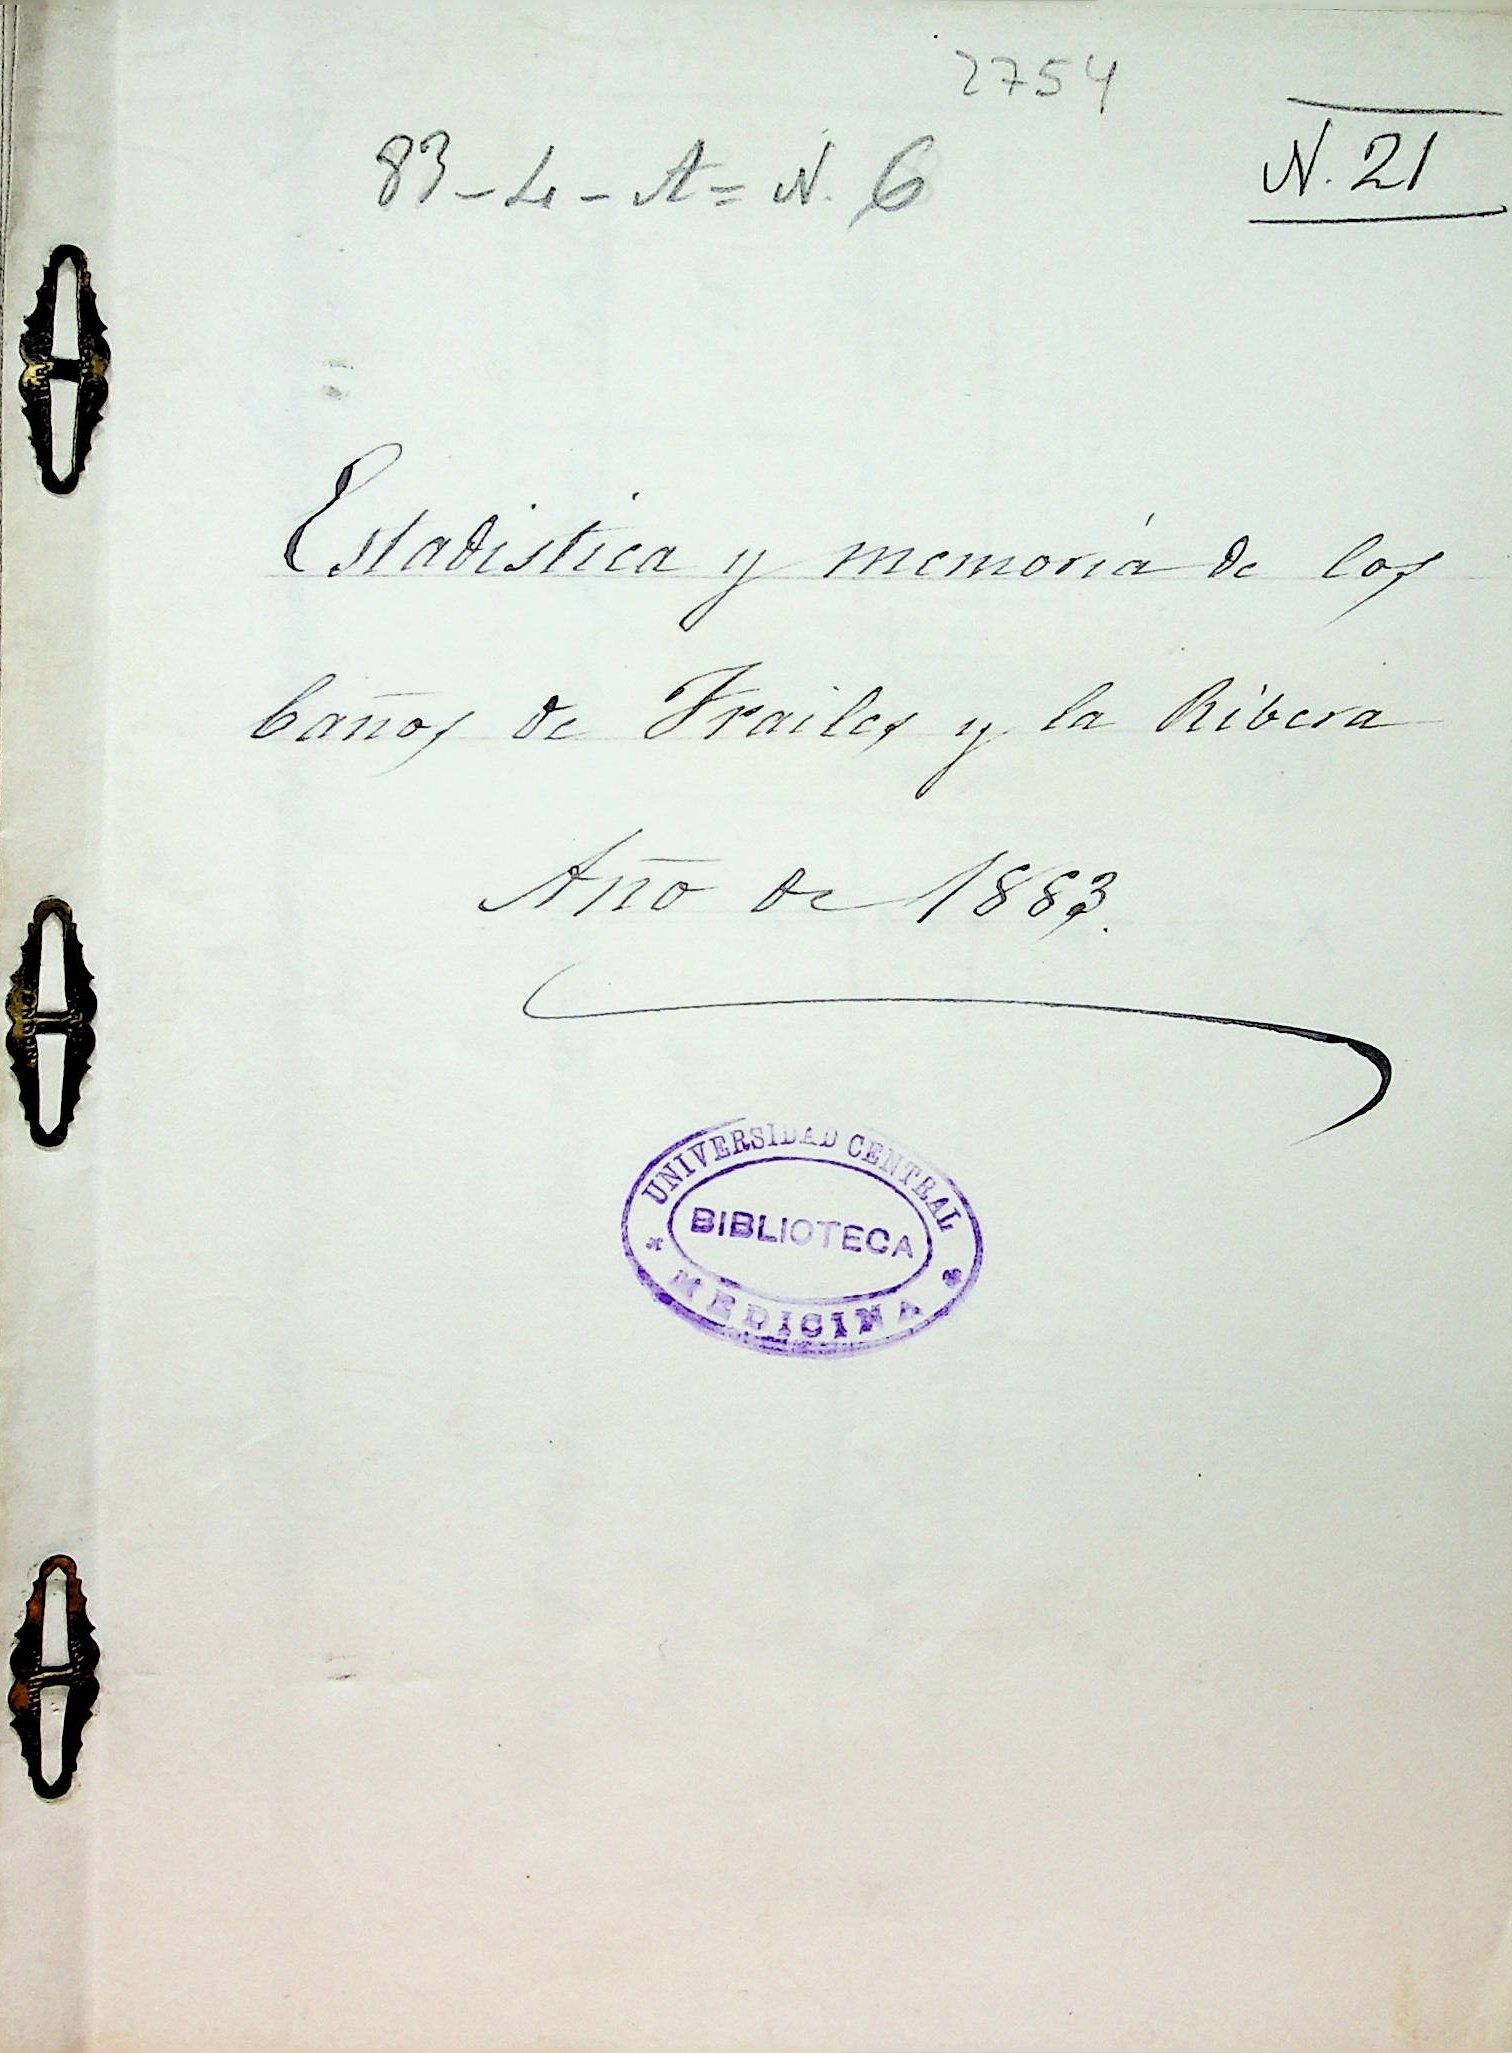 2754
N. 21
83-4-A=N. 6
Estadistica y memoria de los
baños de Frailes y la Ribera
Año de 1883.
UNIVERSIDAD CENTRAL
BIBLIOTECA
MEDICINA